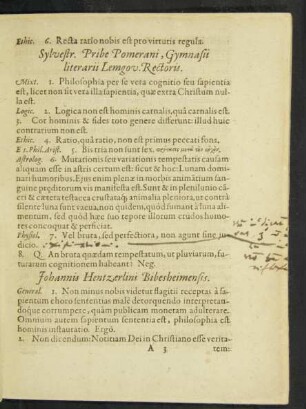 Ethic. 6. Recta ratio nobis est pro virtutis regula.
Sylvestr. Pribe Pomerani, Gymnasii
literarii Lemgov. Rectoris.
Mixt. 1. Philosophia per se vera cognitio seu sapientia
est, licet non sit vera illa sapientia, quæ extra Christum nul-
la est.
Logic. 2. Logica non est hominis carnalis, quâ carnalis est.
3. Cor hominis & fides toto genere differunt: illud huic
contrarium non est.
Ethic. 4. Ratio, quâ ratio, non est primus peccati fons.
E 1. Phil. Arist. 5. Bis tria non sunt sex.
Astrolog. 6. Mutationis seu variationis tempestatis causam
aliquam esse in astris certum est: sicut & hoc: Lunam domi-
nari humoribus. Ejus enim plenæ in nucleis animatium san-
guine preditorum vis manifesta est. Sunt & in plenilunio cân-
cri & cætera testacea crustataq; animalia pleniora, at contrà
silente luna sunt vacua: non quidem, quòd fumant à luna ali-
mentum, sed quòd hæc suo tepore illorum crudos humo-
res concoquat & perficiat.
Physiol. 7. Vel bruta, sed perfectiora, non agunt sine ju-
dicio.
8. Q. An bruta quædam tempestatum, ut pluviarum, fu-
turarum cognitionem habeant? Neg.
Johannis Hentzerlini Bibesheimensis.
General. 1. Non minus nobis videtur flagitii receptas à sa-
pientum choro sententias malè detorquendo interpretan-
doque corrumpere, quàm publicam monetam adulterare.
Omnium autem sapientum sententia est, philosophia est
hominis instauratio. Ergò.
2. Non dicendum: Notitiam Dei in Christiano esse verita-
A 3 tem: